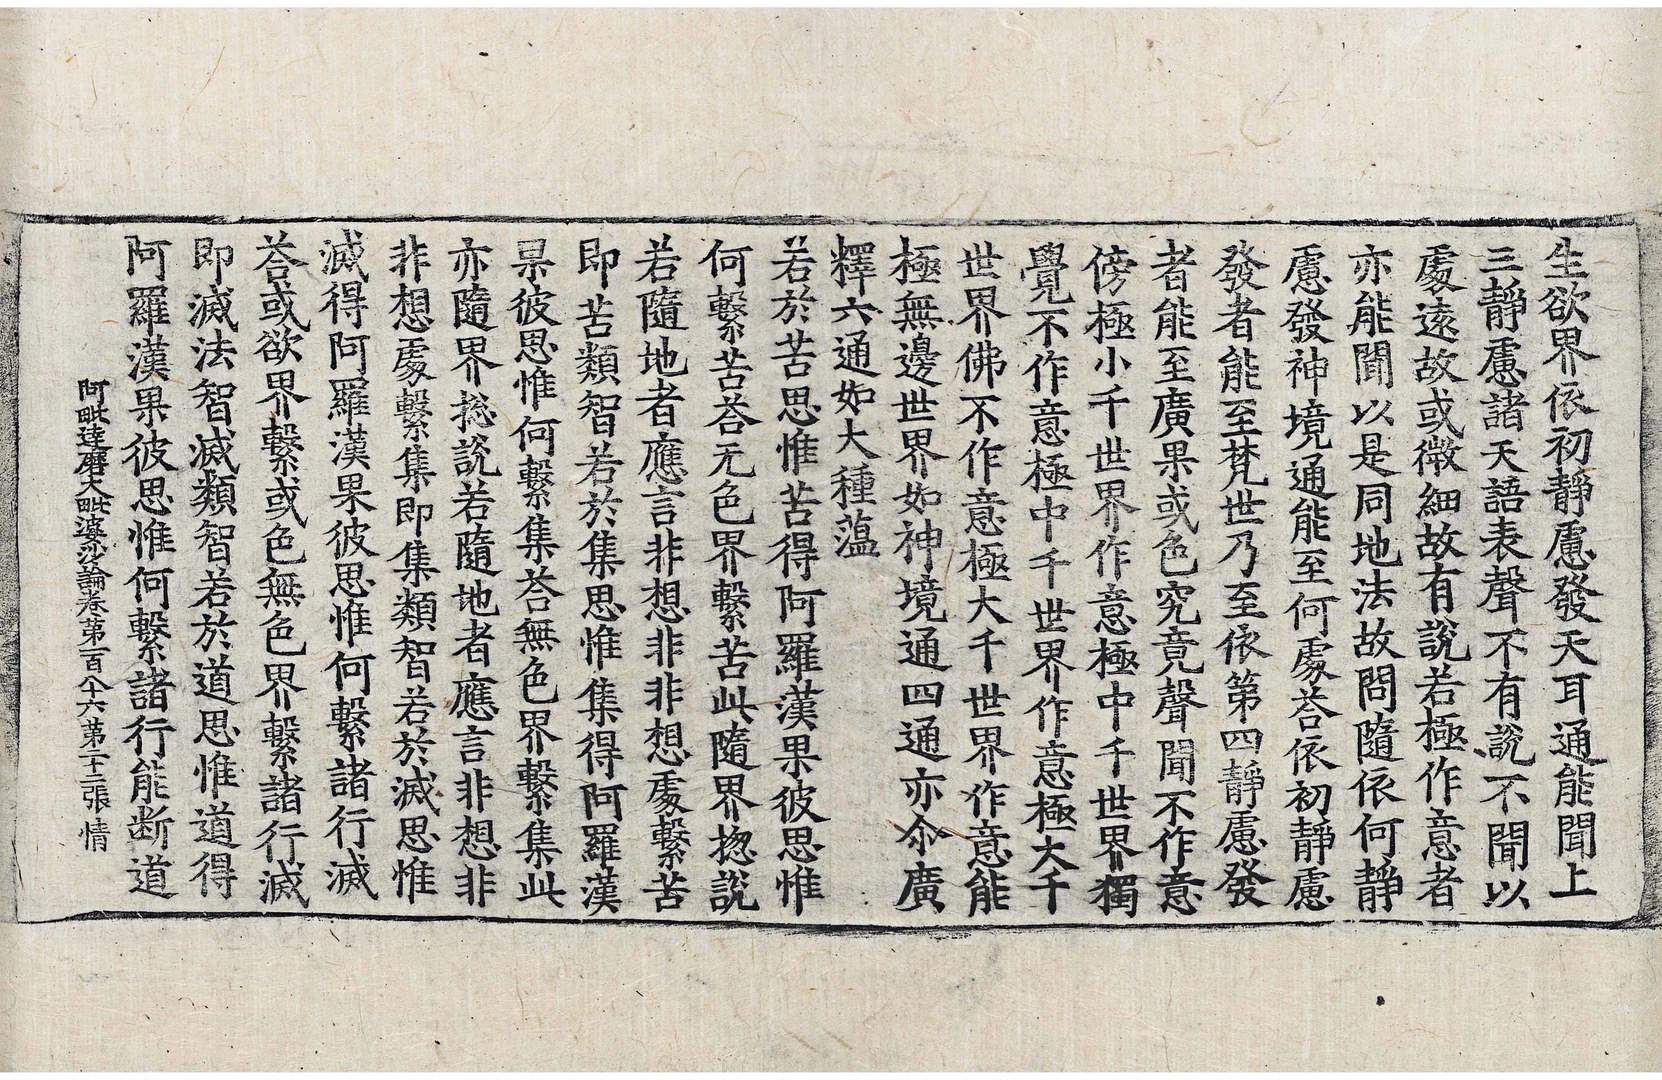 生欲界依初靜慮發天耳通能聞上
三靜慮諸天語表聲不有說不聞以
處遠故或微細故有說若極作意者
亦能聞以是同地法故問隨依何靜
慮發神境通能至何處荅依初靜慮
發者能至梵世乃至依第四靜慮發
者能至廣果或色究竟聲聞不作意
傍極小千世界作意極中千世界獨
覺不作意極中千世界作意極大千
世界佛不作意極大千世界作意能
極無邊世界如神境通四通亦尒廣
釋六通如大種蘊
若於苦思惟苦得阿羅漢果彼思惟
何繫苦荅无色界繫苦此隨界揔說
若隨地者應言非想非非想處繫苦
即苦類智若於集思惟集得阿羅漢
果彼思惟何繫集荅無色界繫集此
亦隨界捴說若隨地者應言非想非
非想處繫集即集類智若於滅思惟
滅得阿羅漢果彼思惟何繫諸行滅
荅或欲界繫或色無色界繫諸行滅
即滅法智滅類智若於道思惟道得
阿羅漢果彼思惟何繫諸行能断道
阿毗達磨大毗婆沙論卷第一百八十六第二十二張 情